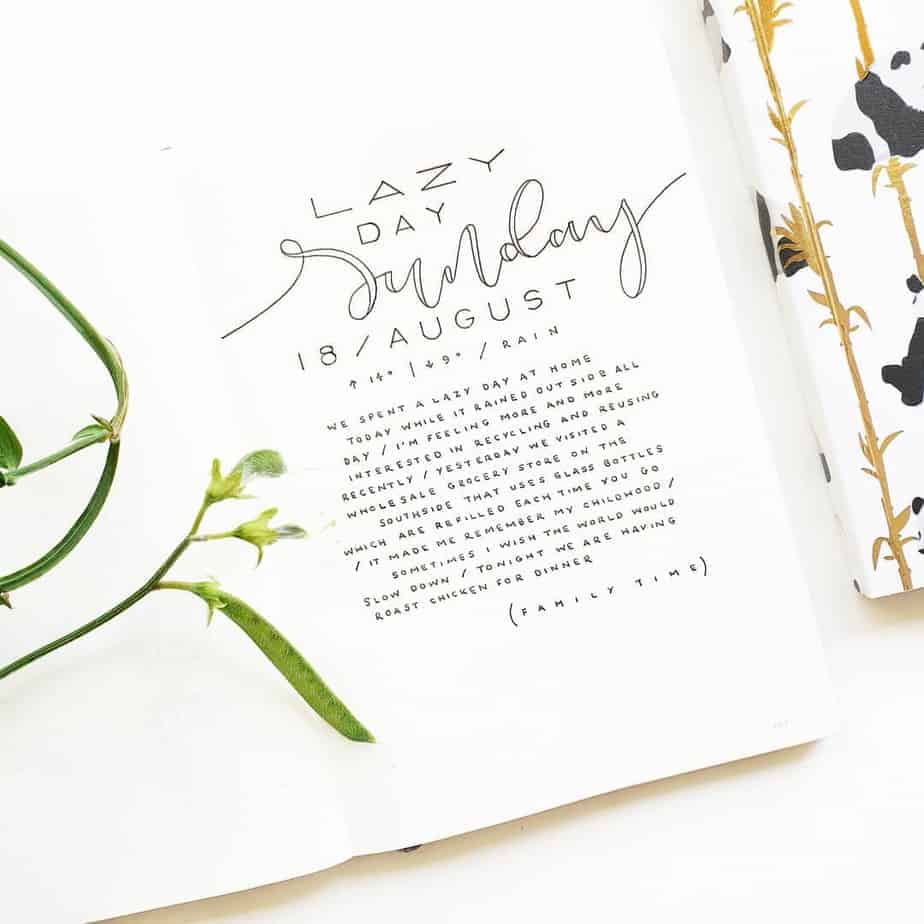 LAZY
DAY
Sunday
18/AUGUST
↑ 14° | ↓ 9° / RAIN
WE SPENT A LAZY DAY AT HOME
TODAY WHILE IT RAINED OUTSIDE ALL
DAY / I'M FEELING MORE AND MORE
INTERESTED IN RECYCLING AND REUSING
RECENTLY / YESTERDAY WE VISITED A
WHOLESALE GROCERY STORE ON THE
SOUTHSIDE THAT USES GLASS BOTTLES
WHICH ARE REFILLED EACH TIME YOU GO
/ IT MADE ME REMEMBER MY CHILDHOOD /
SOMETIMES I WISH THE WORLD WOULD
SLOW DOWN / TONIGHT WE ARE HAVING
ROAST CHICKEN FOR DINNER
(FAMILY TIME)